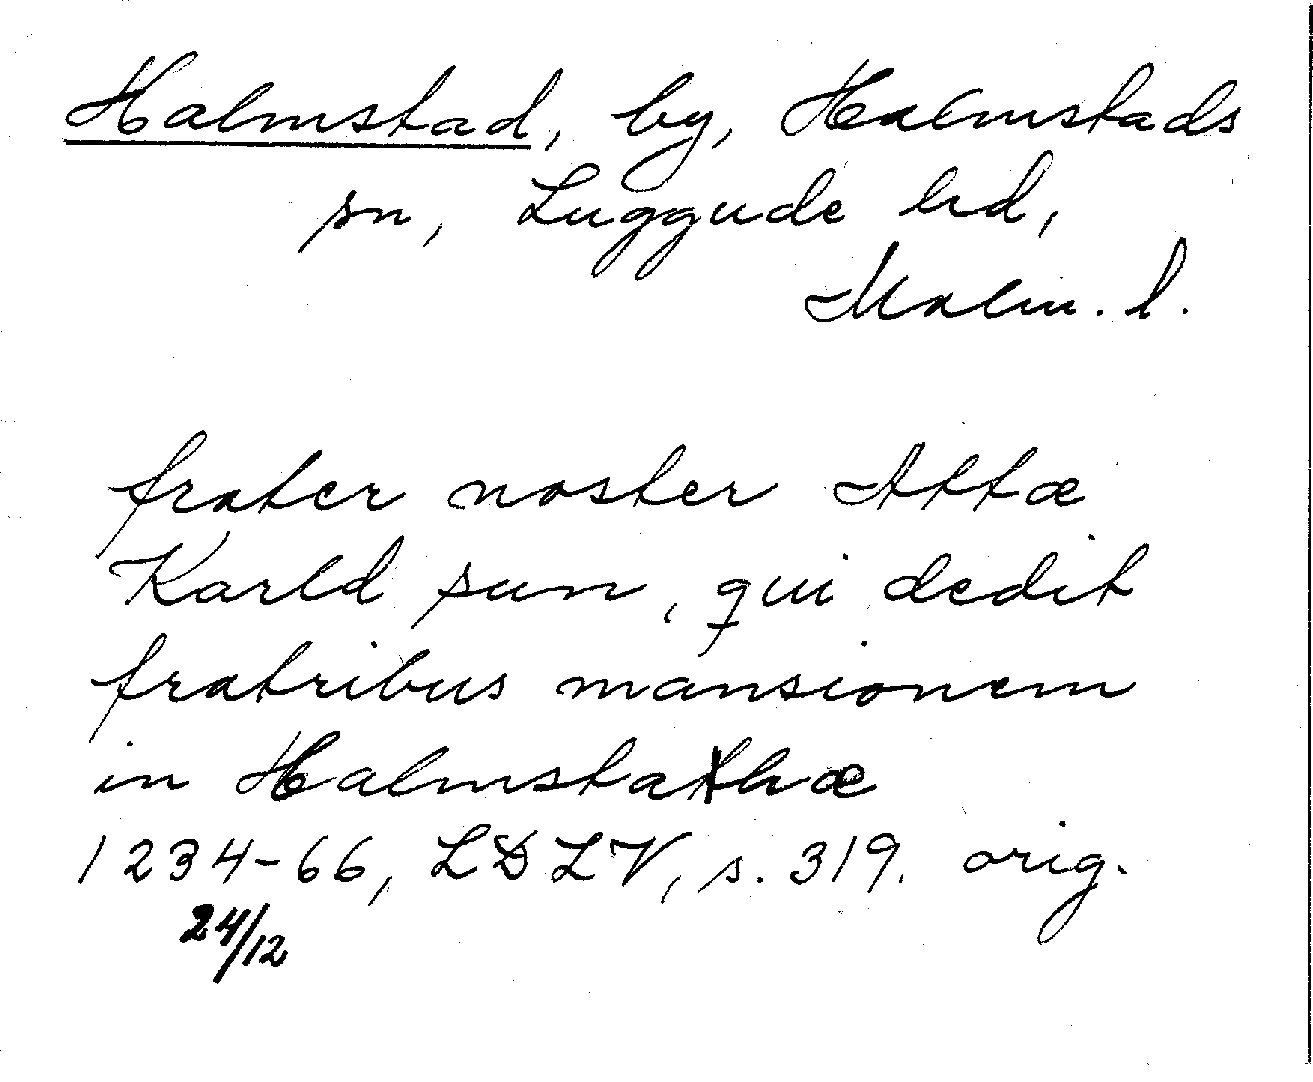 Halmstad, by, Halmstads
sn, Luggude hd,
Malm. l.
frater noster Attæ
Karld sun, qui dedit
fratribus mansionem
in Halmstathæ
1234-66, LDLV, s. 319. orig.
24/12